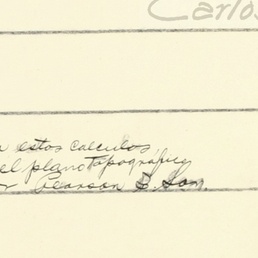 Carlos
estos calculos
el plano topográfico
Pearson & Son.